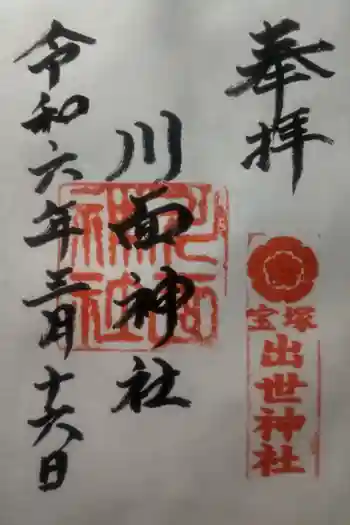 奉拝
宝塚
出世神社
川面神社
川面神社
令和六年三月十六日